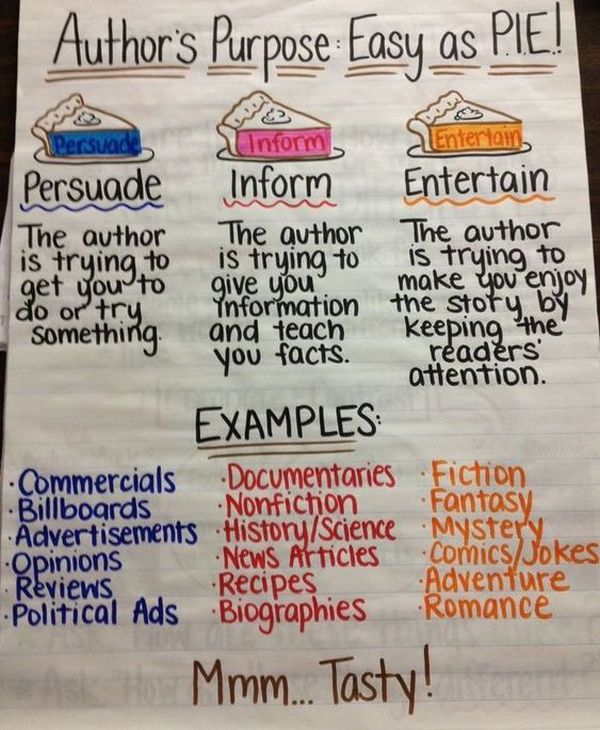 Author's Purpose: Easy as P.I.E!
Persuade
Inform
Entertain
Persuade
The author
is trying to
get you to
do or try
something.
Inform
The author
is trying to
give you
information
and teach
you facts.
Entertain
The author
is trying to
make you enjoy
the story by
keeping the
readers'
attention.
EXAMPLES:
·Commercials
·Billboards
·Advertisements
·Opinions
·Reviews
·Political Ads
·Documentaries
·Nonfiction
·History/Science
·News Articles
·Recipes
·Biographies
·Fiction
·Fantasy
·Mystery
·Comics/Jokes
·Adventure
·Romance
Mmm... Tasty!